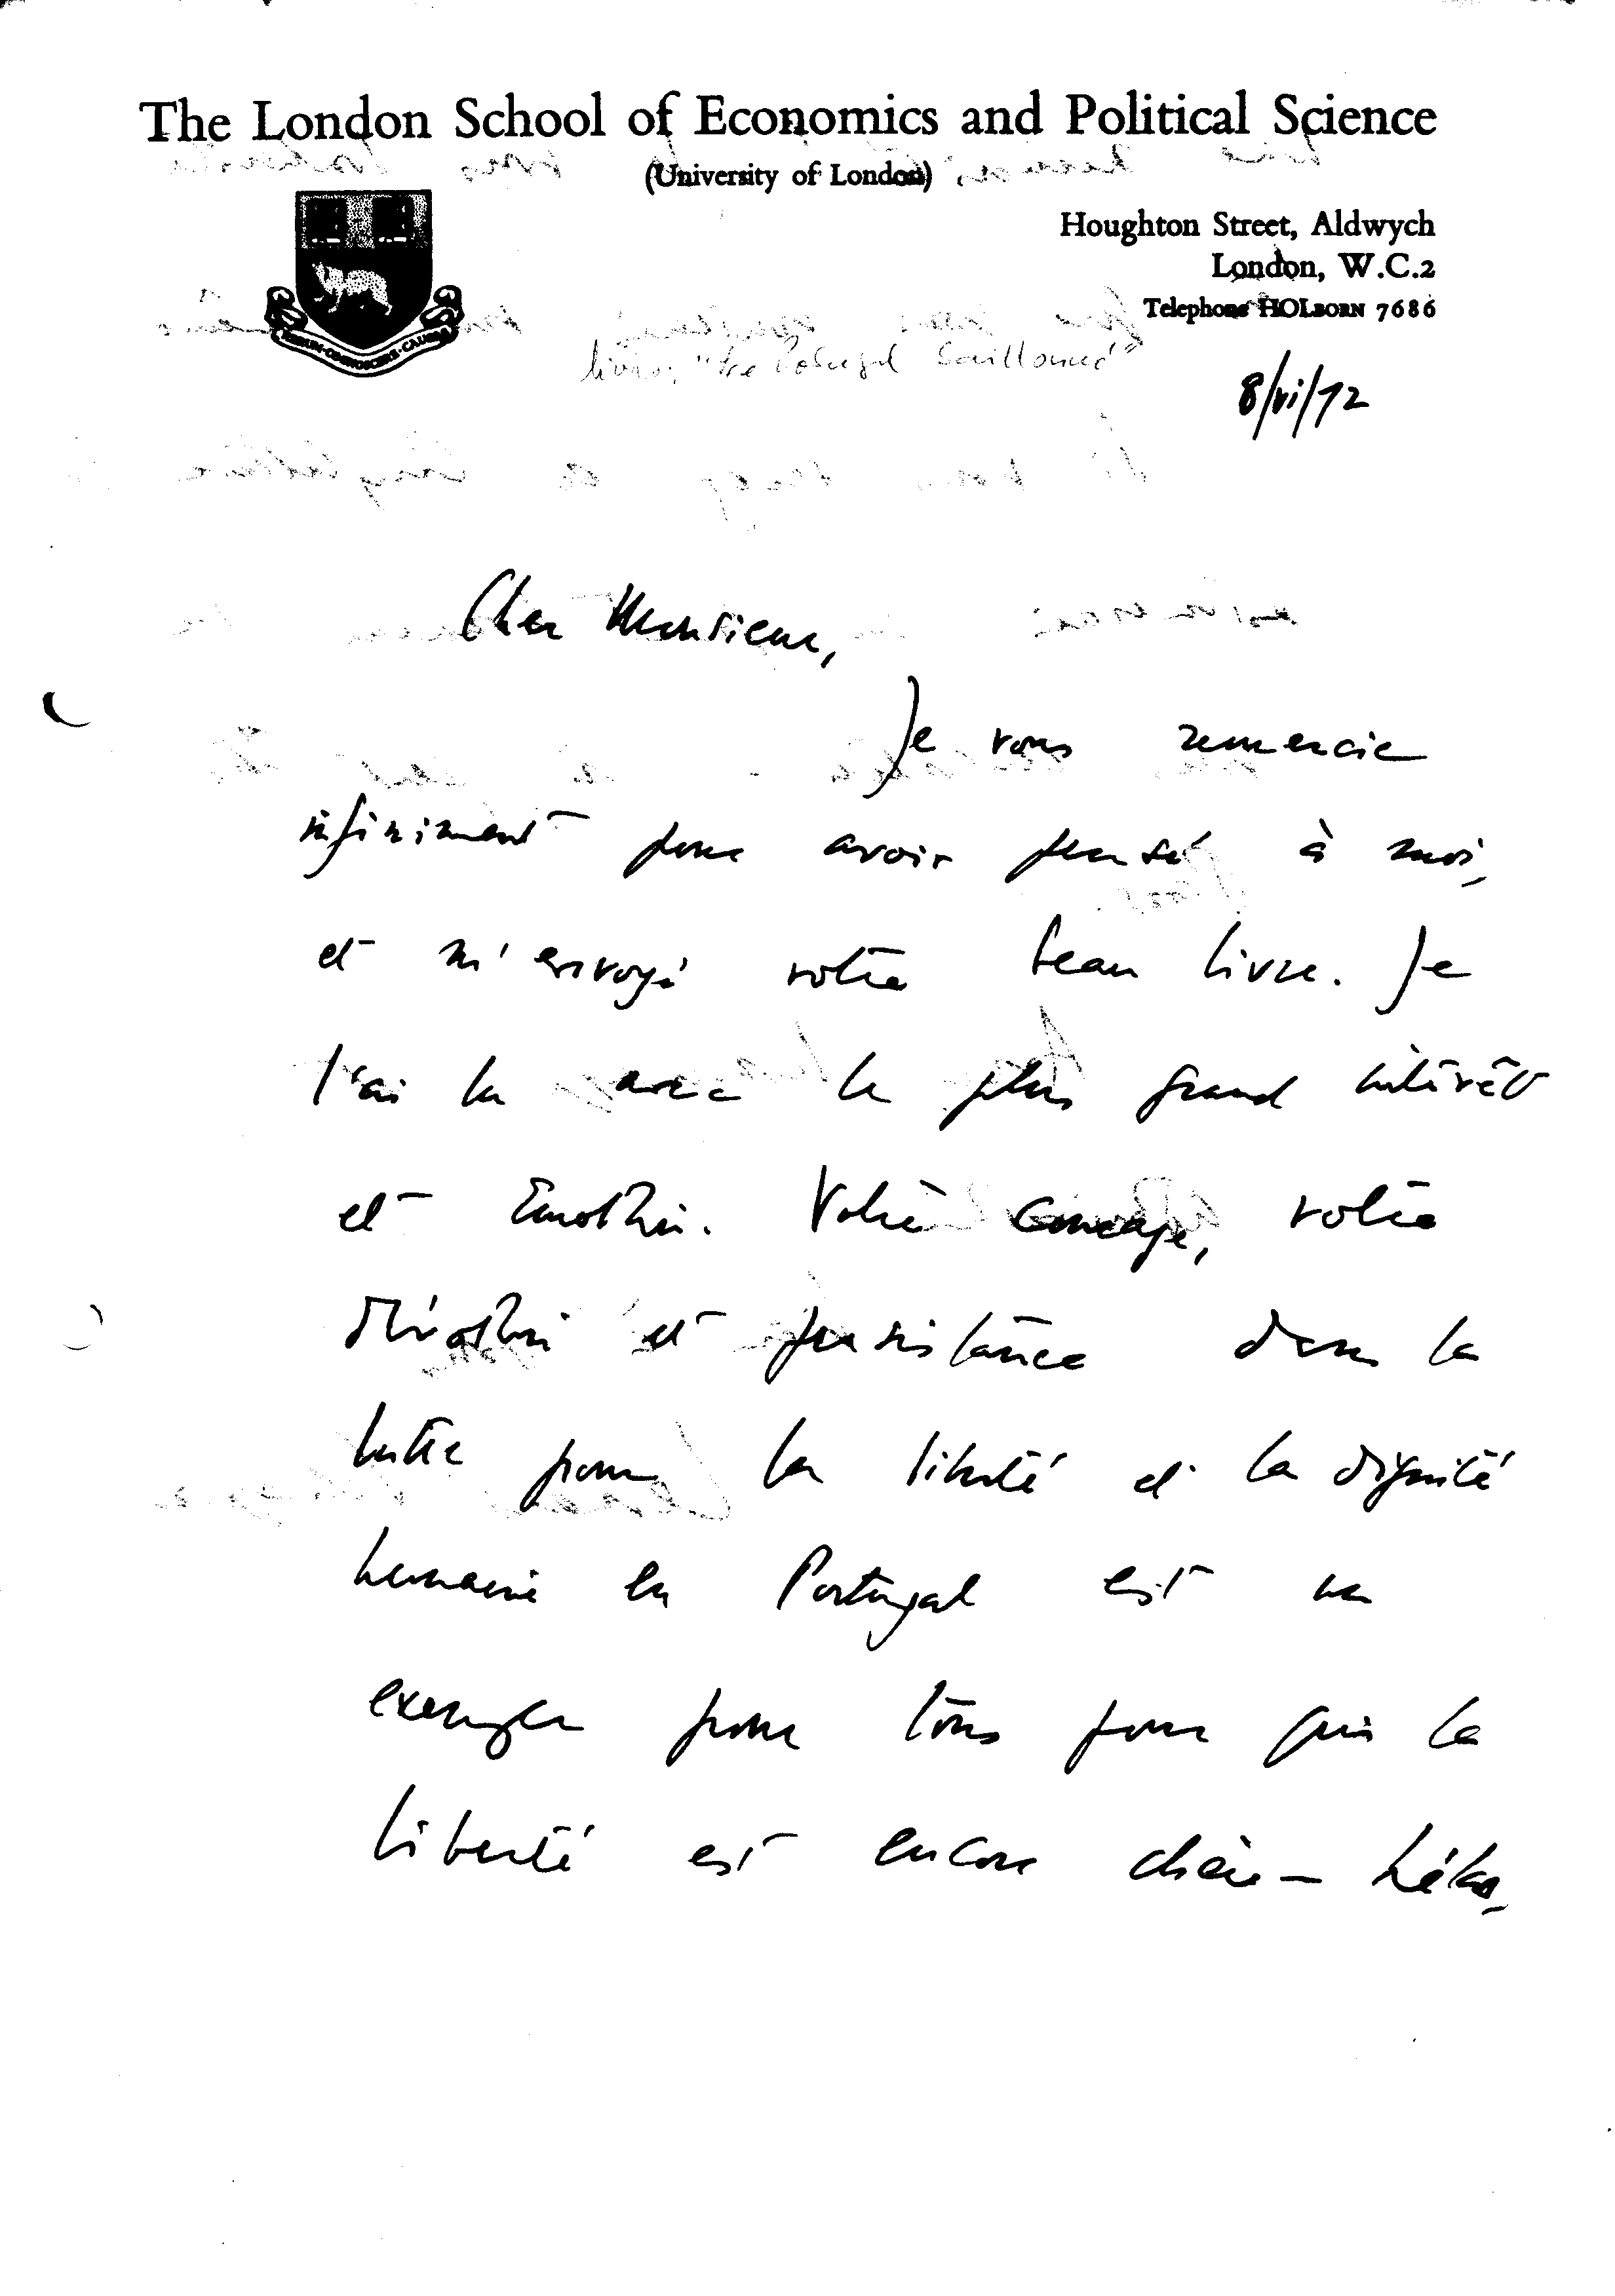 The London School of Economics and Political Science
(University of London)
Houghton Street, Aldwych
London, W.C.2
Telephone HOLBORN 7686
RERUM·COGNOSCERE·CAUSAS
livre, "Le Portugal baillonné"
8/vi/72
Cher Monsieur,
Je vous remercie
infiniment pour avoir pensé à moi,
et m'envoyé votre beau livre. Je
l'ai lu avec le plus grand intérêt
et émotion. Votre courage, votre
dévotion et persistance dans la
lutte pour la liberté et la dignité
humaine en Portugal est un
exemple pour tous pour qui la
liberté est encore chère – hélas,